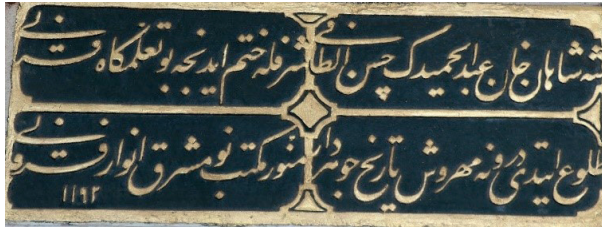 شه شاهان خان عبدالحمیدك حسن الطافی
شرفله ختم ایدنجه بو تعلمكاه قرآنی
طلوع ایتدی درونه مهروش تاریخ جوهردار
منور مكتب نو مشرق انوار فرقانی
١١٩٢